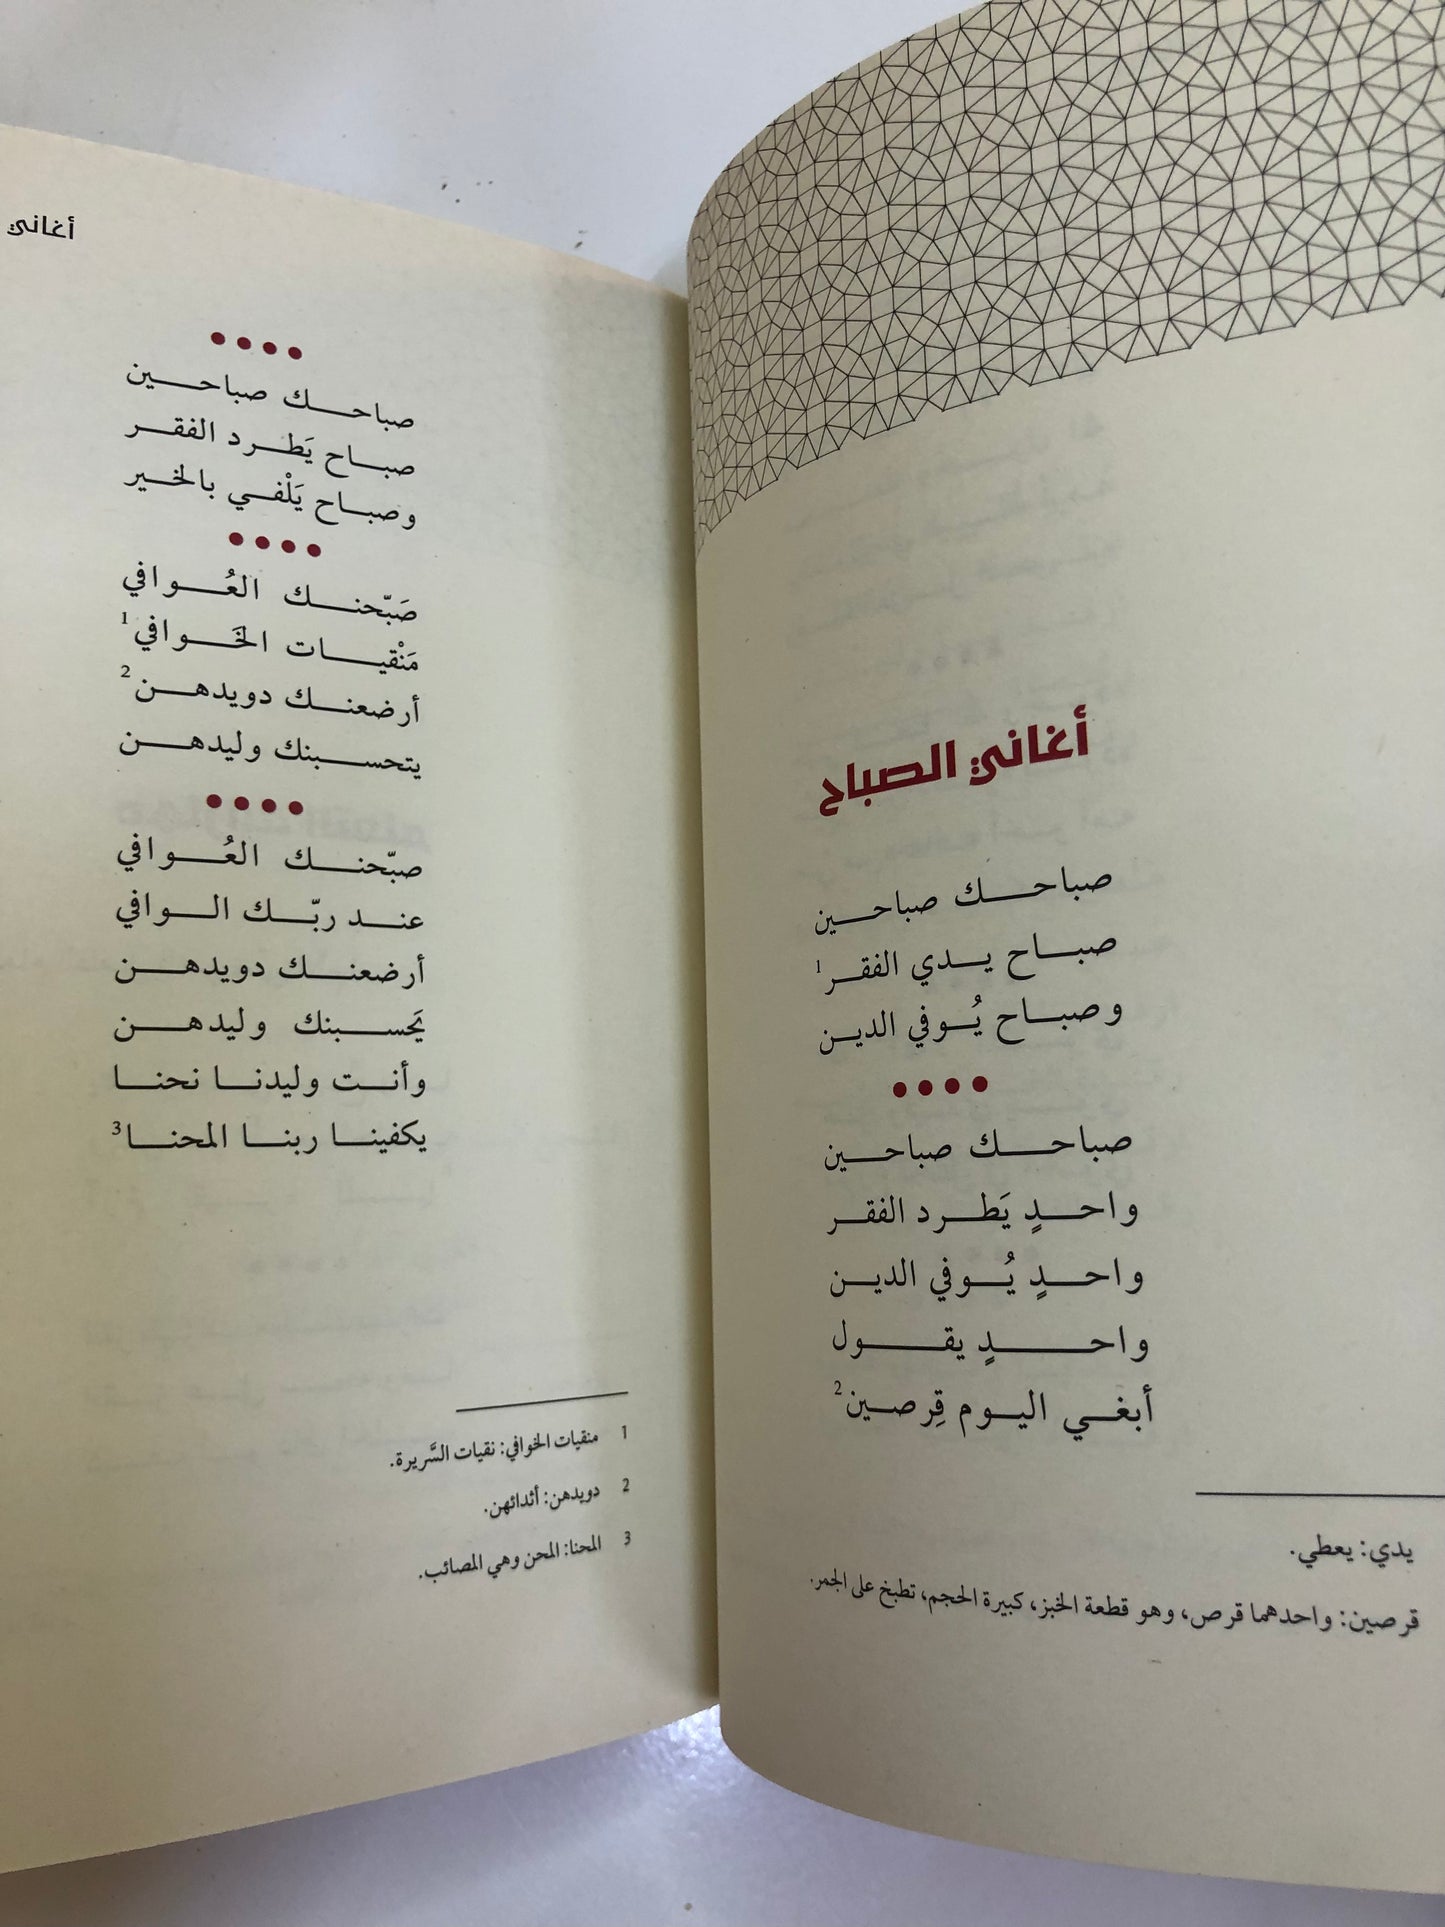 أغاني الصباح
صباحك صباحين
صباح يدي الفقر1
وصباح يُوفي الدين
صباحك صباحين
واحدٍ يَطرد الفقر
واحدٍ يُوفي الدين
واحدٍ يقول
أبغي اليوم قِرصين2
يدي: يعطي.
قرصين: واحدهما قرص، وهو قطعة الخبز، كبيرة الحجم، تطبخ على الجمر.
أغاني
صباحك صباحين
صباح يَطرد الفقر
وصباح يَلْفي بالخير
صَبّحنك العُوافي
مَنْقيات الخَوافي1
أرضعنك دويدهن2
يتحسبنك وليدهن
صبّحنك العُوافي
عند ربّك الوافي
أرضعنك دويدهن
يَحسبنك وليدهن
وأنت وليدنا نحنا
يكفينا ربنا المحنا3
1 منقيات الخوافي: نقيات السَّريرة.
2 دويدهن: أثدائهن.
3 المحنا: المحن وهي المصائب.